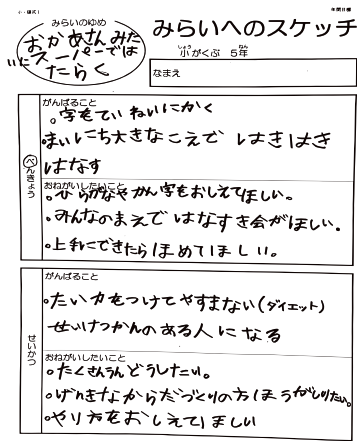 みらいのゆめ
おかあさんみた
いにスーパーでは
たらく
みらいへのスケッチ
小がくぶ 5年
しょう ねん
なまえ
べんきょう
がんばること
。字をていねいにかく
まいにち大きなこえで はきはき
はなす
おねがいしたいこと
。ひらがなやかん字をおしえてほしい。
。みんなのまえで はなすき会がほしい。
。上手にできたらほめてほしい。
せいかつ
がんばること
。たい力をつけてやすまない(ダイエット)
せいけつかんのある人になる
おねがいしたいこと
。たくさんうんどうしたい。
。げんきなからだづくりの方ほうがしりたい。
。やり方をおしえてほしい